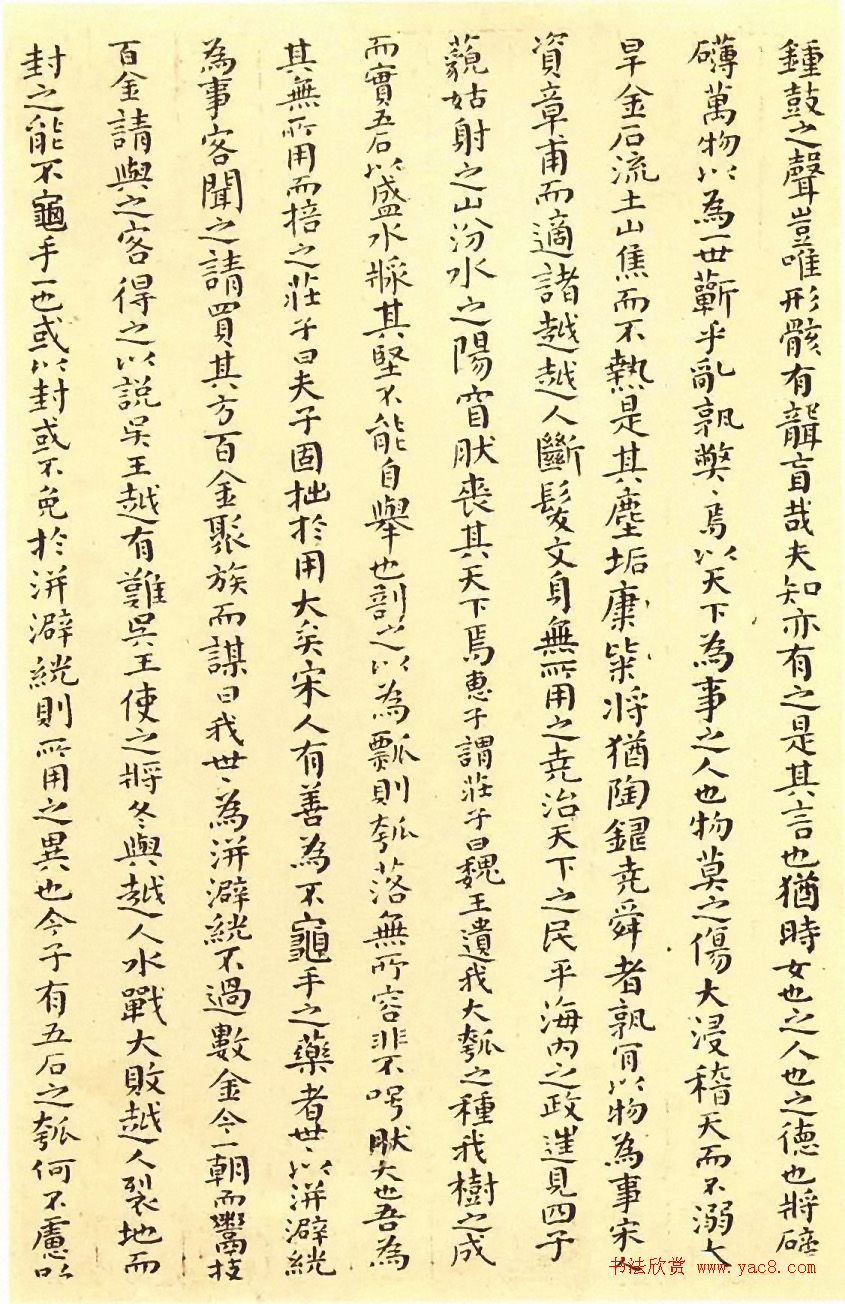 鍾鼓之聲豈唯形骸有聾盲哉夫知亦有之是其言也猶時女也之人也之德也將磅
礴萬物以為一世蘄乎亂孰弊〻焉以天下為事之人也物莫之傷大浸稽天而不溺大
旱金石流土山焦而不熱是其塵垢穅粃將猶陶鑄堯舜者孰肯以物為事宋
資章甫而適諸越越人斷髮文身無所用之堯治天下之民平海內之政進見四子
藐姑射之山汾水之陽窅然喪其天下焉惠子謂莊子曰魏王遺我大瓠之種我樹之成
而實五石以盛水漿其堅不能自舉也剖之以為瓢則瓠落無所容非不呺然大也吾為
其無所用而掊之莊子曰夫子固拙於用大矣宋人有善為不龜手之藥者世〻以洴澼絖
為事客聞之請買其方百金聚族而謀曰我世〻為洴澼絖不過數金今一朝而鬻技
百金請與之客得之以說吳王越有難吳王使之將冬與越人水戰大敗越人裂地而
封之能不龜手一也或以封或不免於洴澼絖則所用之異也今子有五石之瓠何不慮以
书法欣赏 www.yac8.com